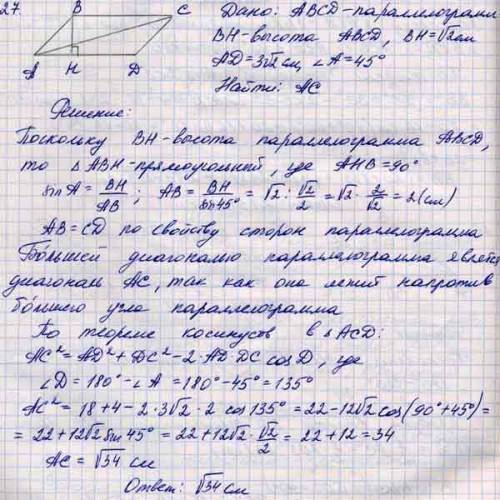 27.
B C
A H D
Дано: ABCD-параллелограмм
BH-высота ABCD, BH=√2см
AD=3√2см, ∠A=45°
Найти: AC
Решение:
Поскольку BH-высота параллелограмма ABCD,
то △ABH-прямоугольный, где AHB=90°
sinA = BH/AB; AB = BH/sin45° = √2 : √2/2 = √2 · 2/√2 = 2(см)
AB=CD по свойству сторон параллелограмма
Бо́льшей диагональю параллелограмма является
диагональ AC, так как она лежит напротив
бо́льшего угла параллелограмма
По теореме косинусов в △ACD:
AC² = AD² + DC² - 2·AD·DC cosD, где
∠D = 180° - ∠A = 180° - 45° = 135°
AC² = 18+4-2·3√2·2 cos135° = 22-12√2 cos(90°+45°) =
= 22+12√2 sin45° = 22+12√2 · √2/2 = 22+12 = 34
AC = √34 см
Ответ: √34 см